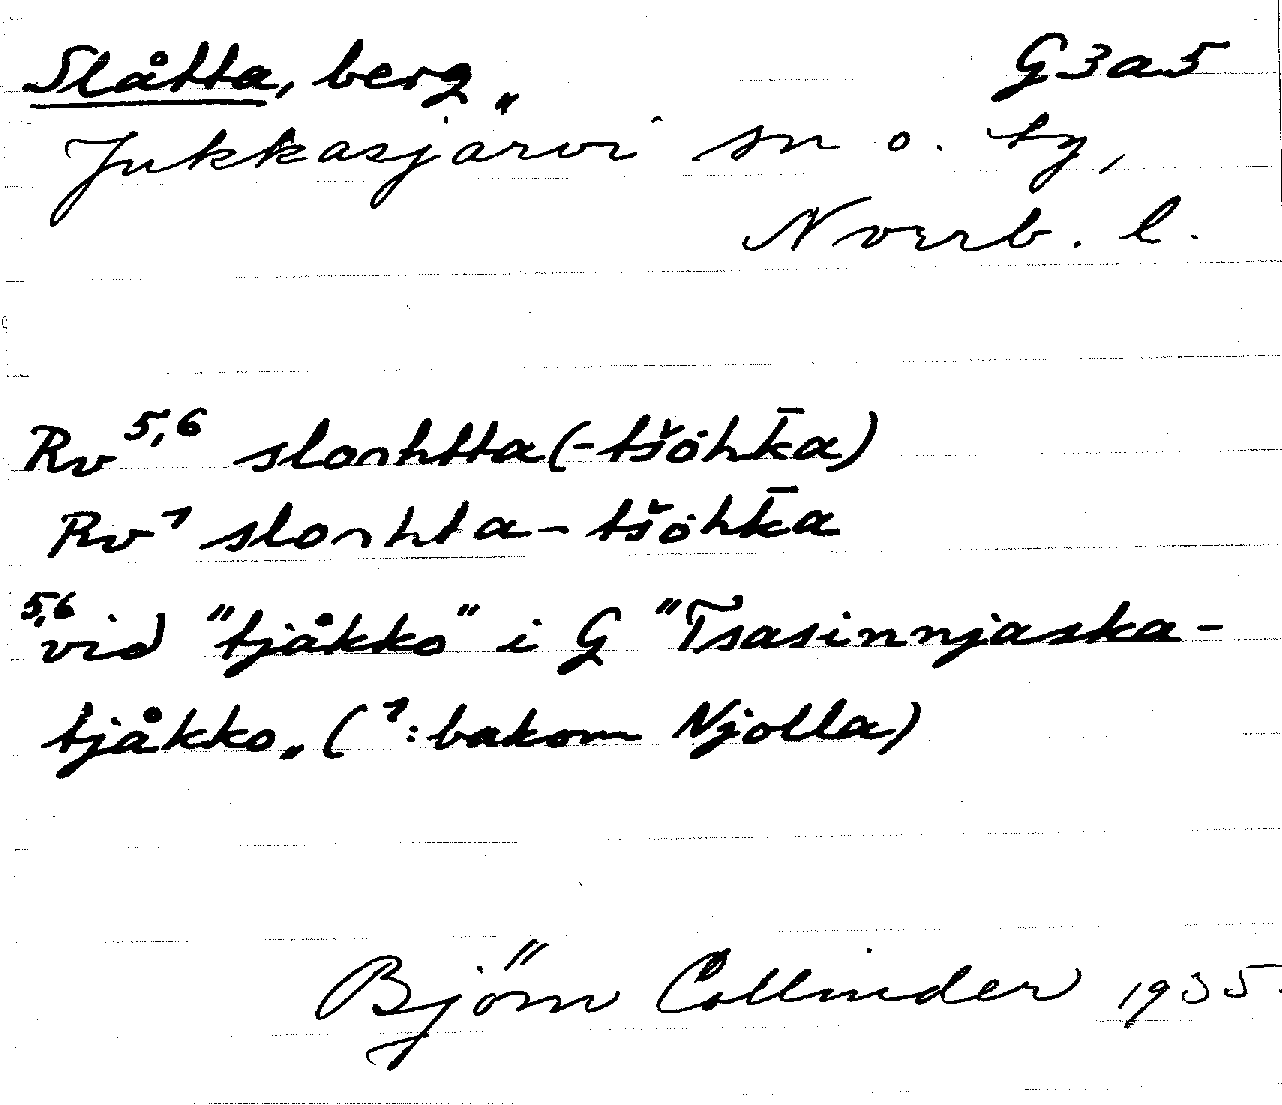 Slåtta, berg„ G3a5
Jukkasjärvi sn o. tg,
Nverb. l.
Rv 5,6 sloɑhtta(-tšȯhk̄a)
Rv 7 sloɑhta-tšȯhk̄a
5,6 vid "tjåkko" i G "Tsasinnjaska-
tjåkko„ (7: bakom Njolla)
Björn Collinder 1935.